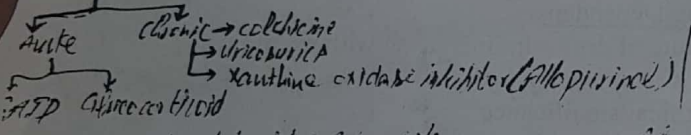 Chronic → colchicine
Acute
→ Uricosurics
→ Xanthine oxidase inhibitor (Allopurinol)
Glucocorticoid